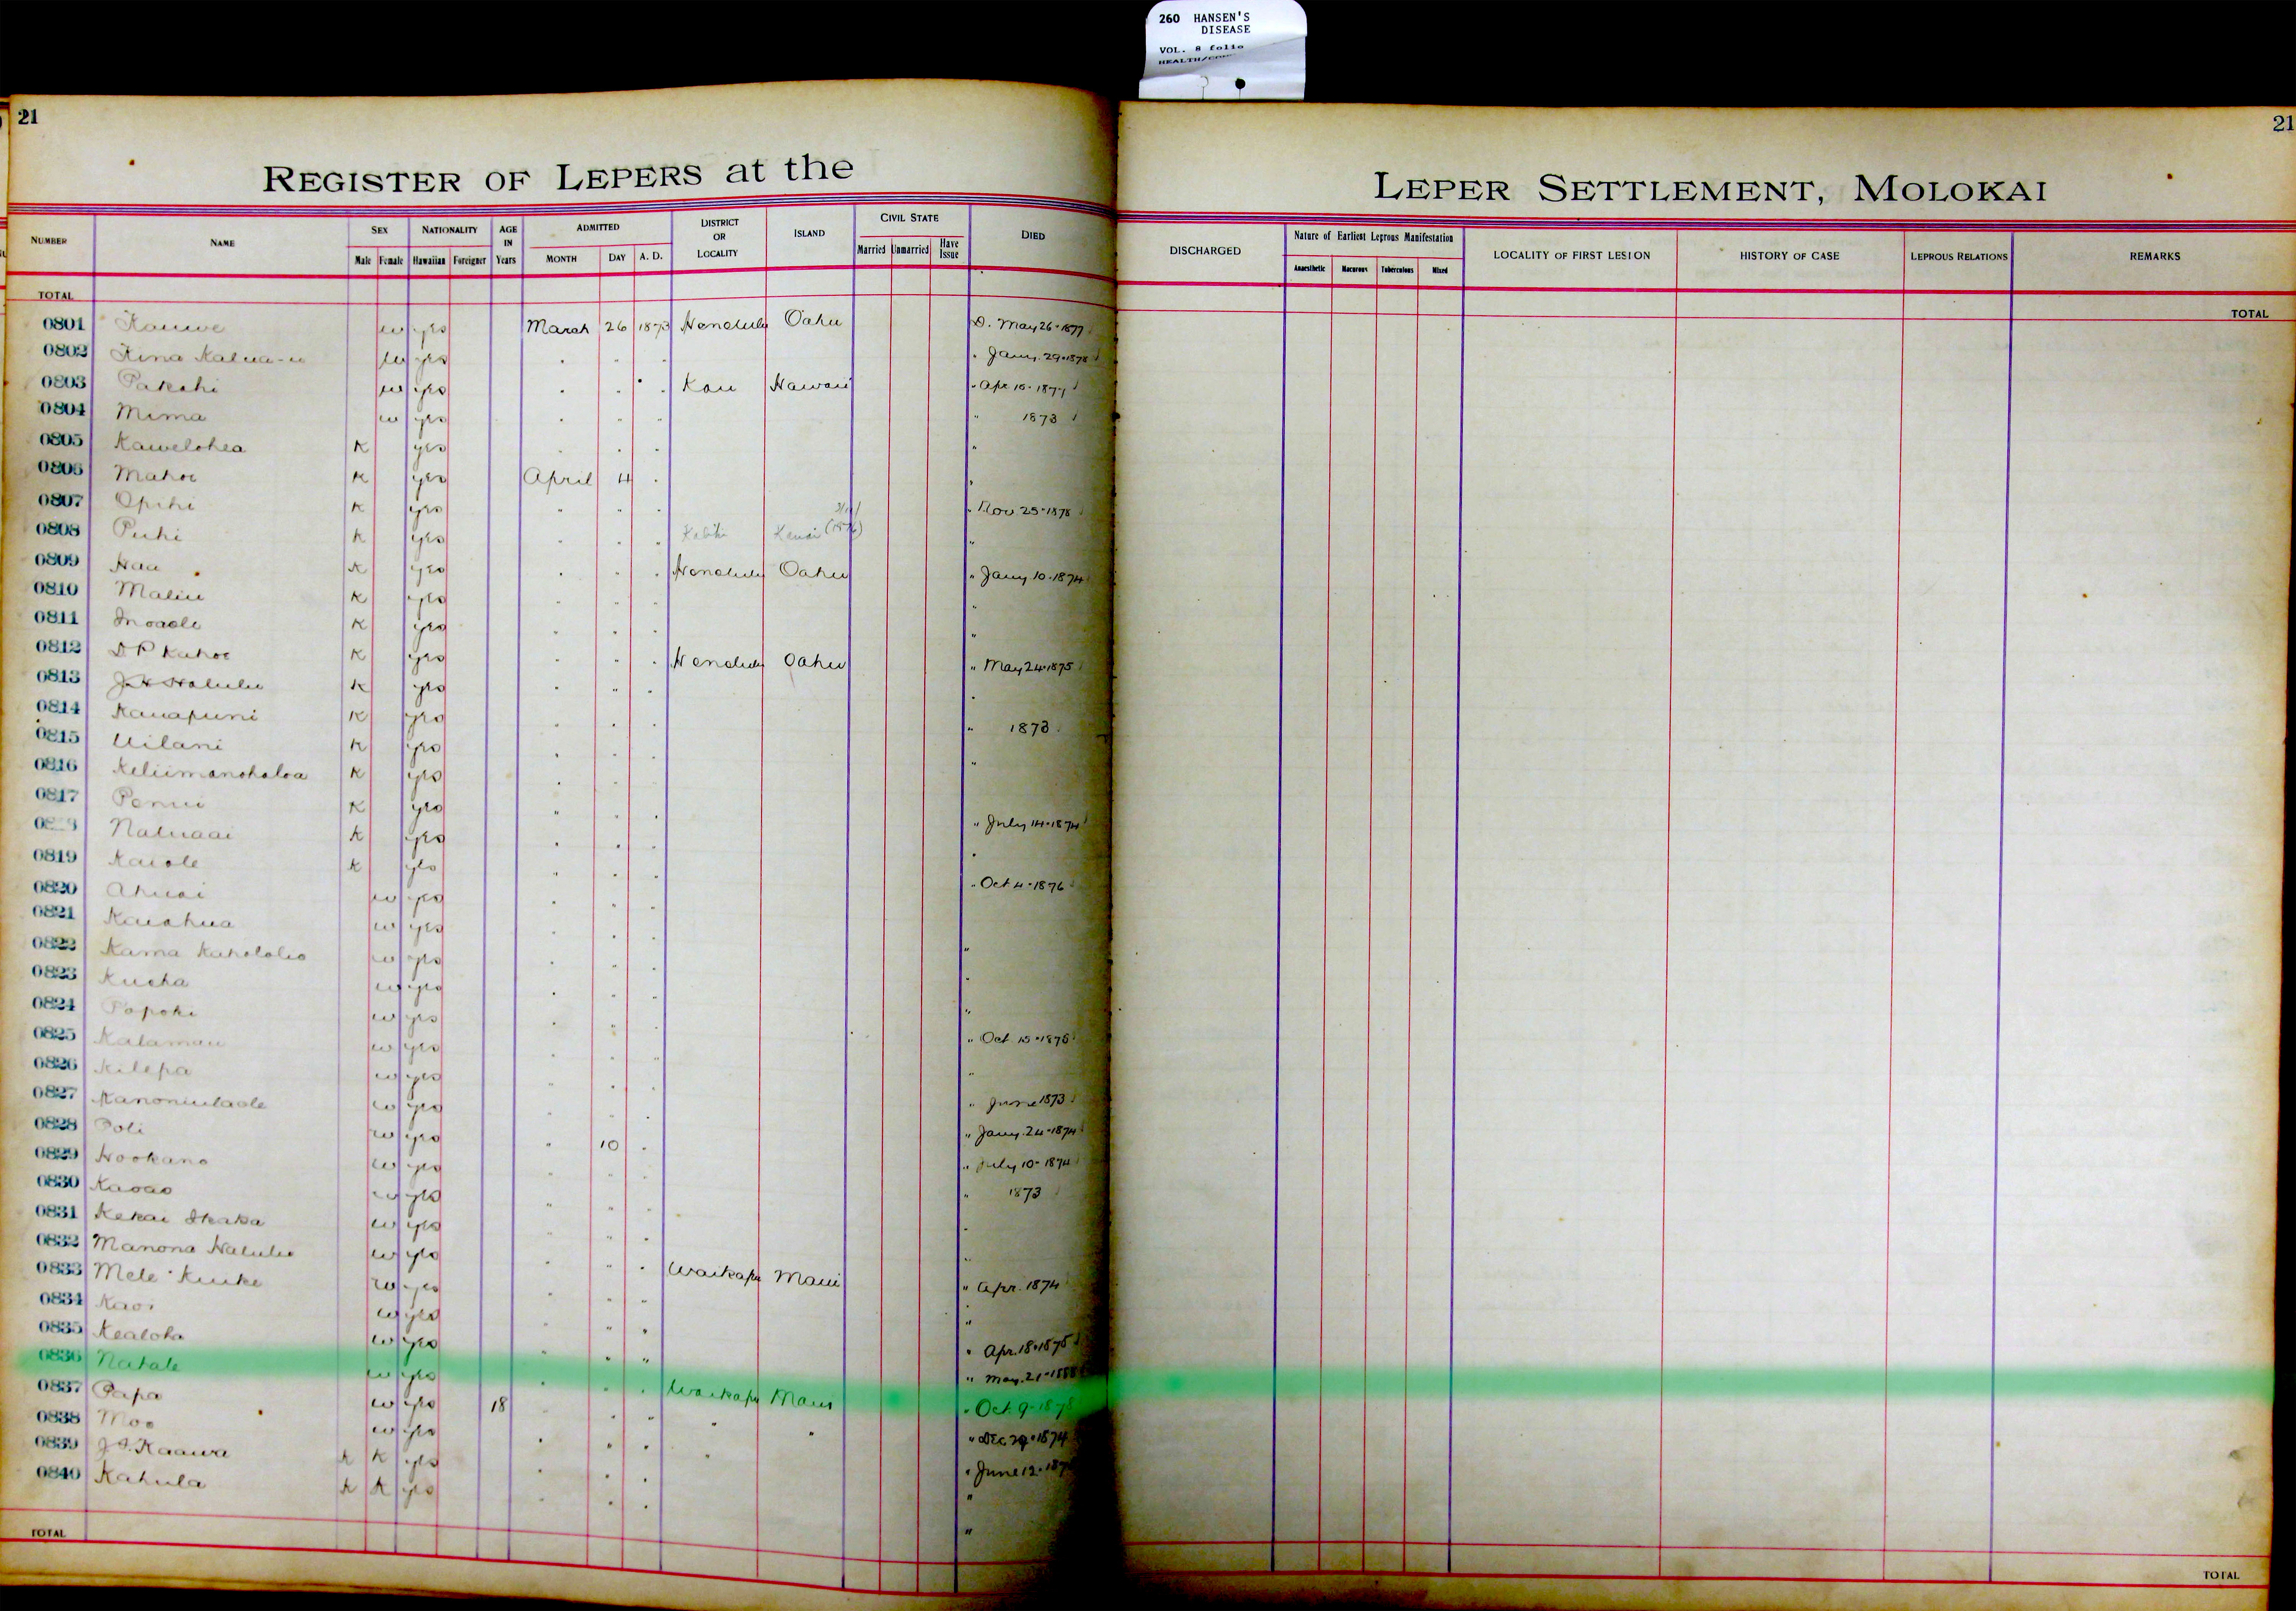 260 HANSEN'S
DISEASE
VOL. 8 folio
21
21
REGISTER OF LEPERS at the
LEPER SETTLEMENT, MOLOKAI
NUMBER NAME SEX Male Female NATIONALITY Hawaiian Foreigner AGE IN Years ADMITTED MONTH DAY A. D. DISTRICT OR LOCALITY ISLAND CIVIL STATE Married Unmarried Have Issue DIED
DISCHARGED Nature of Earliest Leprous Manifestation Anaesthetic Macorous Tuberculous Mixed LOCALITY OF FIRST LESION HISTORY OF CASE LEPROUS RELATIONS REMARKS
TOTAL
TOTAL
0801 Kauwe w yes March 26 1873 Honolulu Oahu D. May 26-1877
0802 w yes " " " " Jany. 29-1878
0803 Pakahi w yes " " " Kau Hawaii " Apr 10-1877
0804 Mima w yes " " " " 1873
0805 Kawelohea K yes " " " "
0806 Mahoe K yes April 4 " "
0807 Opihi K yes " " " " Nov 25-1878
0808 Puhi K yes " " " Kauai "
0809 Hau K yes " " " Honolulu Oahu " Jany 10-1874
0810 Maliu K yes " " " "
0811 K yes " " " "
0812 Kahoe K yes " " " Honolulu Oahu " May 24-1875
0813 Halulu K yes " " " "
0814 Kauapuni K yes " " " " 1873
0815 Uilani K yes " " " "
0816 Keliimanohaloa K yes " " "
0817 K yes " " " " July 14-1874
Naluaai K yes " " " "
0819 Kaiole K yes " " " " Oct 4-1876
0820 Ahuai w yes " " "
0821 Kaiahua w yes " " " "
0822 Kama Kahololio w yes " " " "
0823 Kueha w yes " " " "
0824 Popoki w yes " " " " Oct 15-1875
0825 Kalamau w yes " " " "
0826 Kilepa w yes " " " " June 1873
0827 w yes " " " " Jany. 24-1874
0828 Poli w yes " 10 " " July 10-1874
0829 Hookano w yes " " " " 1873
0830 Kaoao w yes " " " "
0831 Kekai w yes " " " "
0832 Manona Halulu w yes " " " Waikapu Maui " Apr. 1874
0833 Mele Kuike w yes " " " "
0834 w yes " " " " Apr. 18-1875
0835 Kealoha w yes " " " " May. 21-1888
0836 Nakale w yes " " " Waikapu Maui " Oct. 9-1878
0837 Papa w yes 18 " " " " " " Dec 29-1874
0838 Moo w yes " " " " " June 12-
0839 Kaawa K K yes " " " "
0840 Kahula K K yes " " " "
TOTAL
TOTAL